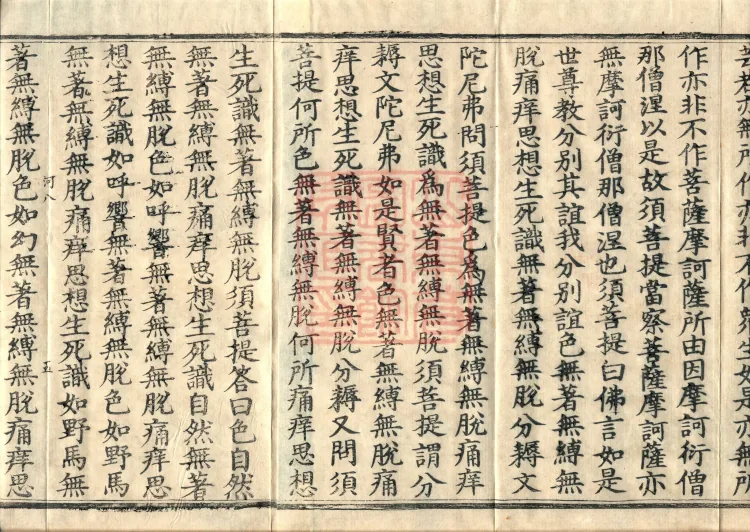 作亦非不作菩薩摩訶薩所由因摩訶衍僧
那僧涅以是故須菩提當察菩薩摩訶薩亦
無摩訶衍僧那僧涅也須菩提曰佛言如是
世尊教分別其誼我分別誼色無著無縛無
脫痛痒思想生死識無著無縛無脫分耨文
陀尼弗問須菩提色爲無著無縛無脫痛痒
思想生死識爲無著無縛無脫須菩提謂分
耨文陀尼弗如是賢者色無著無縛無脫痛
痒思想生死識無著無縛無脫分耨又問須
菩提何所色無著無縛無脫何所痛痒思想
生死識無著無縛無脫須菩提答曰色自然
無著無縛無脫痛痒思想生死識自然無著
無縛無脫色如呼響無著無縛無脫痛痒思
想生死識如呼響無著無縛無脫色如野馬
無著無縛無脫痛痒思想生死識如野馬無
河八 五
著無縛無脫色如幻無著無縛無脫痛痒思